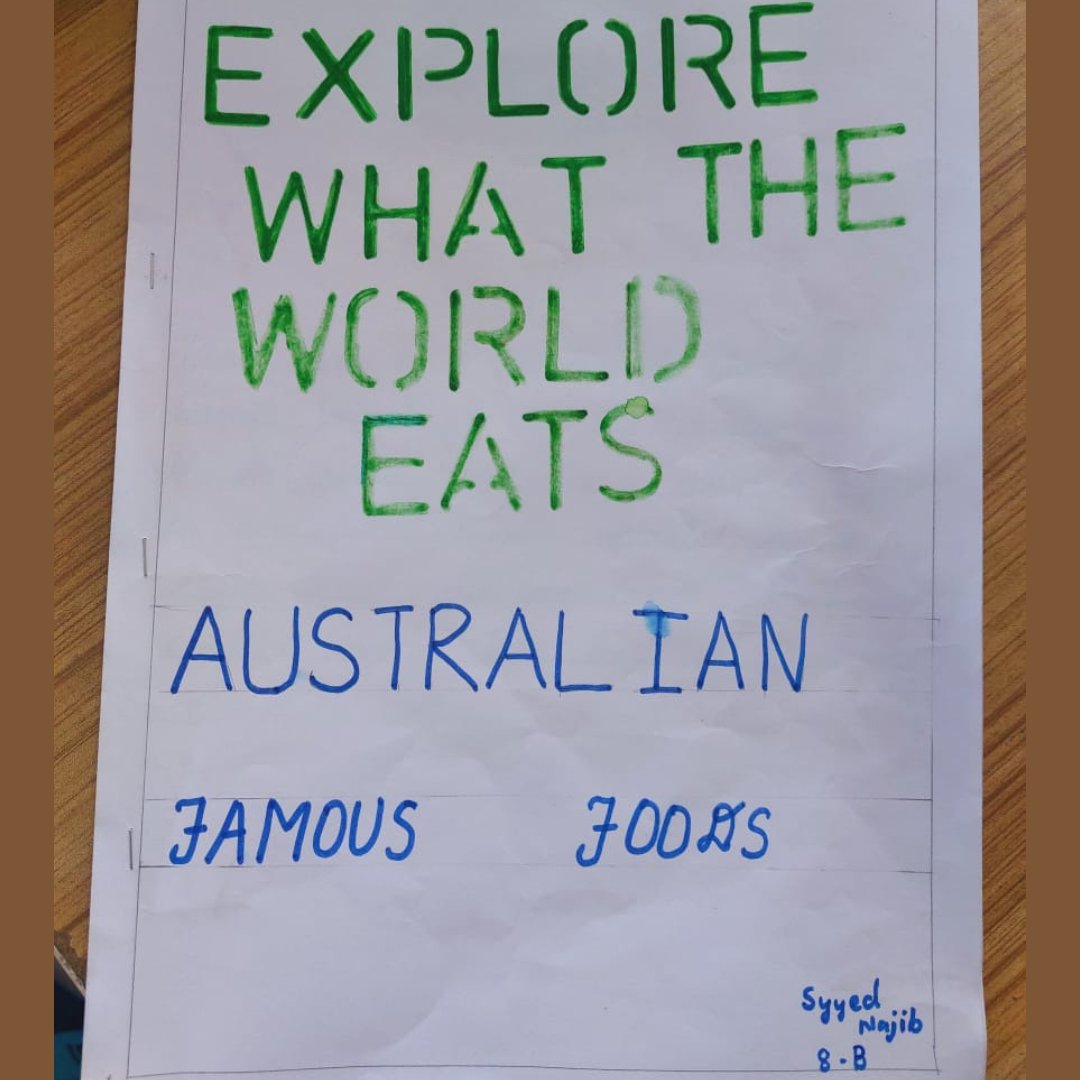 EXPLORE
WHAT THE
WORLD
EATS
AUSTRALIAN
FAMOUS FOODS
Syyed
Najib
8-B